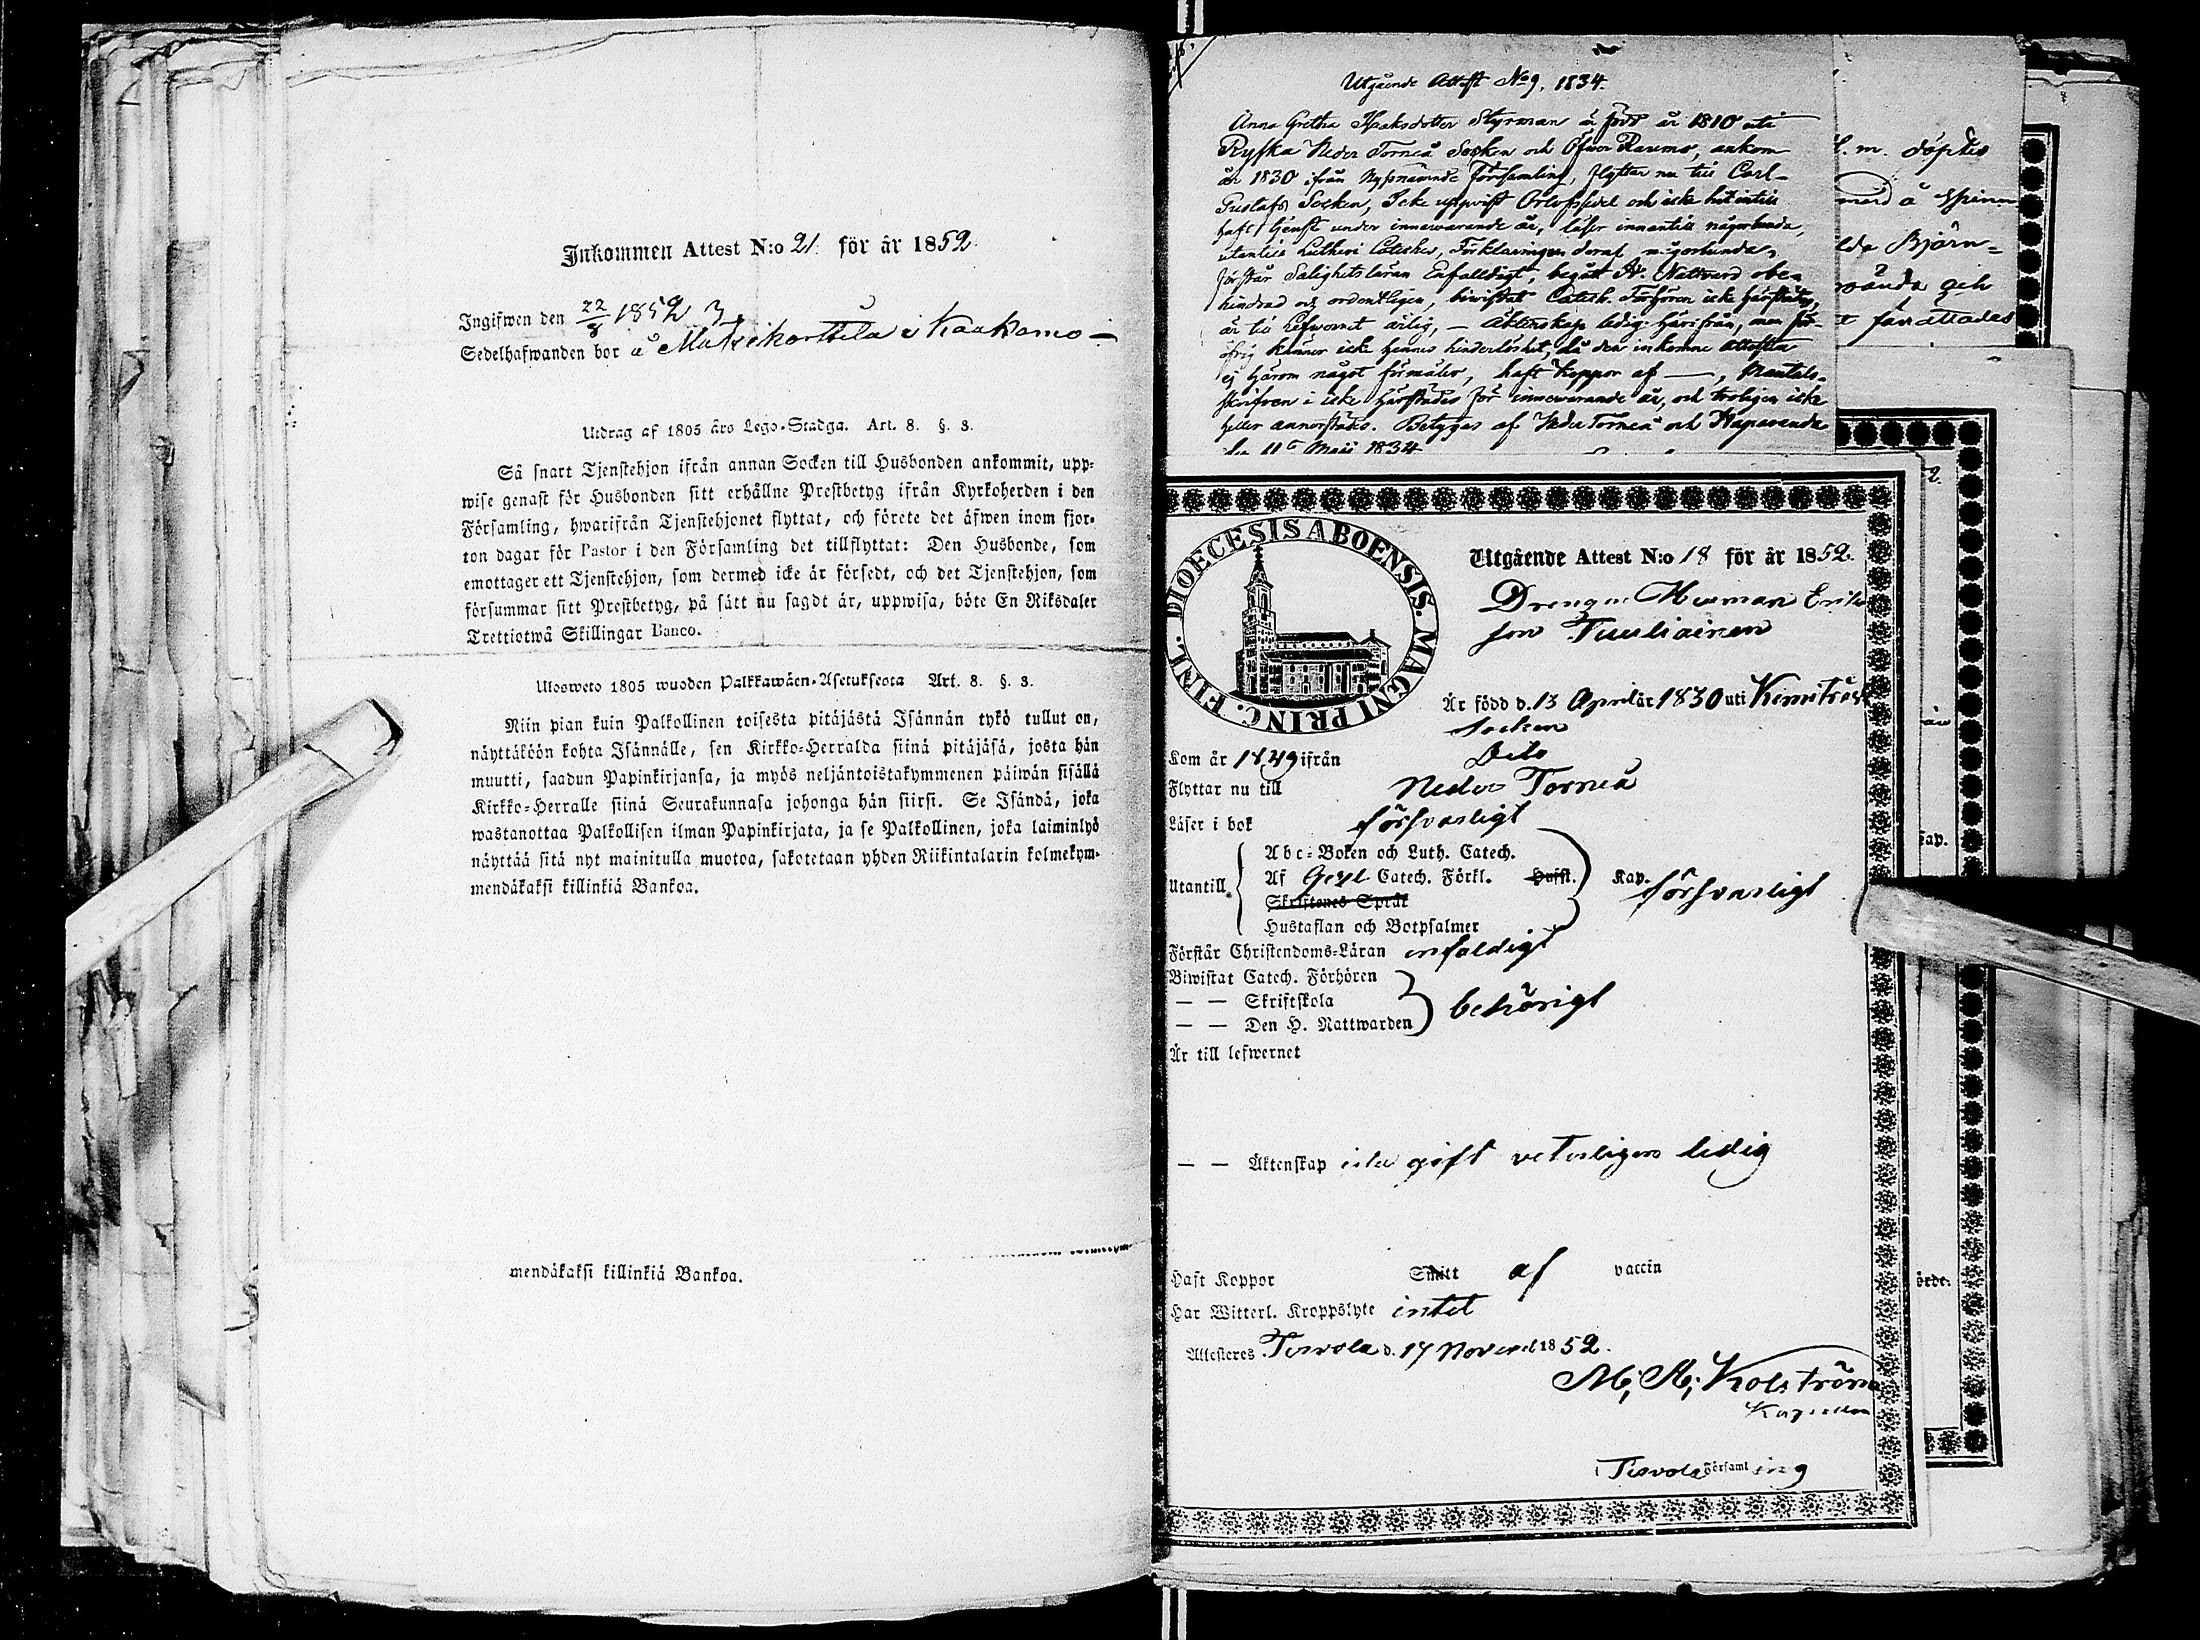 Inkommen Attest N:o 21. för år 1852.
Ingifwen den 22/8 1852
Sedelhafwanden bor å i Kaakamo
Utdrag af 1805 års Lego-Stadga. Art. 8. §. 3.
Så snart Tjenstehjon ifrån annan Socken till Husbonden ankommit, upp-
wise genast för Husbonden sitt erhållne Prestbetyg ifrån Kyrkoherden i den
Församling, hwarifrån Tjenstehjonet flyttat, och förete det äfwen inom fjor-
ton dagar för Pastor i den Församling det tillflyttat: Den Husbonde, som
emottager ett Tjenstehjon, som dermed icke är försedt, och det Tjenstehjon, som
försummar sitt Prestbetyg, på sätt nu sagdt är, uppwisa, böte En Riksdaler
Trettiotwå Skillingar Banco.
Ulosweto 1805 wuoden Palkkawäen-Asetuksesta Art. 8. §. 3.
Niin pian kuin Palkollinen toisesta pitäjästä Isännän tykö tullut on,
näyttäköön kohta Isännälle, sen Kirkko-Herralda siinä pitäjäsä, josta hän
muutti, saadun Papinkirjansa, ja myös neljäntoistakymmenen päiwän sisällä
Kirkko-Herralle siinä Seurakunnasa johonga hän siirsi. Se Isändä, joka
wastanottaa Palkollisen ilman Papinkirjata, ja se Palkollinen, joka laiminlyö
näyttää sitä nyt mainitulla muotoa, sakotetaan yhden Riikintalarin kolmekym-
mendäkaksi killinkiä Bankoa.
mendäkaksi killinkiä Bankoa.
Utgående Attest No 9, 1834.
Anna Gretha Isaksdotter Styrman är född år 1810 uti
Ryska Neder Torneå Socken och Öfver Raumo, ankom
år 1830 ifrån Nyssnämnde Församling, flyttar nu till Carl-
Gustafs Socken, Icke uppvist Orlofssedel och icke hit intill
haft tjenst under innevarande år, läser innantill någorlunda,
utantill Lutheri Cateches, Förklaringen deraf någorlunda,
förstår Salighetsläran Enfalldigt, begått H. Nattvard obe-
hindrad och ordentligen, biwistat Catech. Förhören icke härstädes,
är till Lefwernet ärlig, — Äktenskap ledig härifrån, men för-
öfrig känner icke hennes hinderlöshet, då den inkomne Attesten
ej härom något förmäler, haft Koppor af —, Mantals-
skrifven i icke härstädes för innevarande år, och troligen icke
heller annorstädes. Betygas af Neder Torneå och Haparanda
den 11 Maii 1834
döptes
Björn-
författades
DIOECESIS ABOENSIS. MAGNI PRINC. FINL.
Utgående Attest N:o 18 för år 1852.
Drengen Herman Eriks
son Tuuliainen
Är född d. 13 April år 1830 uti Kemiträsk
Socken
Kom år 1849 ifrån Dito
Flyttar nu till Neder Torneå
Läser i bok försvarligt
Abc-Boken och Luth. Catech.
Utantill. Af Catech. Förkl. Hufst. Kap. försvarligt
Skriftenes Språk
Hustaflan och Botpsalmer
Förstår Christendoms-Läran enfaldigt
Biwistat Catech. Förhören
— — Skriftskola behörigt
— — Den H. Nattwarden
Är till lefwernet
— — Äktenskap icke gift veterligen ledig
Haft Koppor Smitt af vaccin
Har Witterl. Kroppslyte intet
Attesteres Tervola d. 17 Novemb 1852.
M; M; Kolström
i Tervola Församling